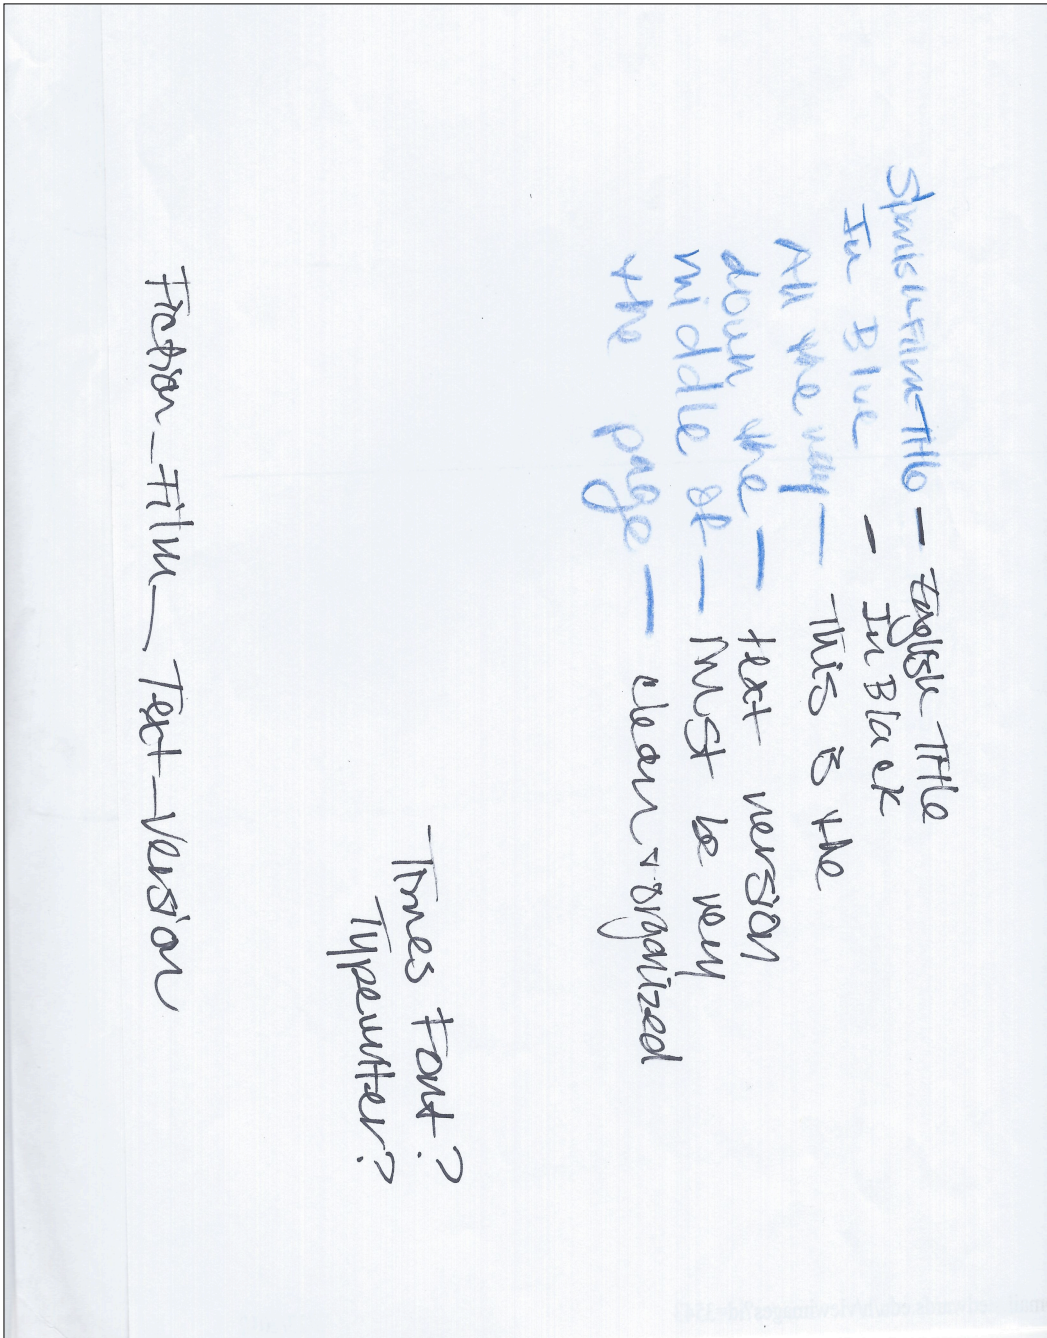 Spanish-Film-Title — English-Title
In Blue — In Black
All the way — This is the
down the — text version
middle of — must be very
the page — clean & organized
Times Font?
Typewriter?
Fiction_Film_Text_Version